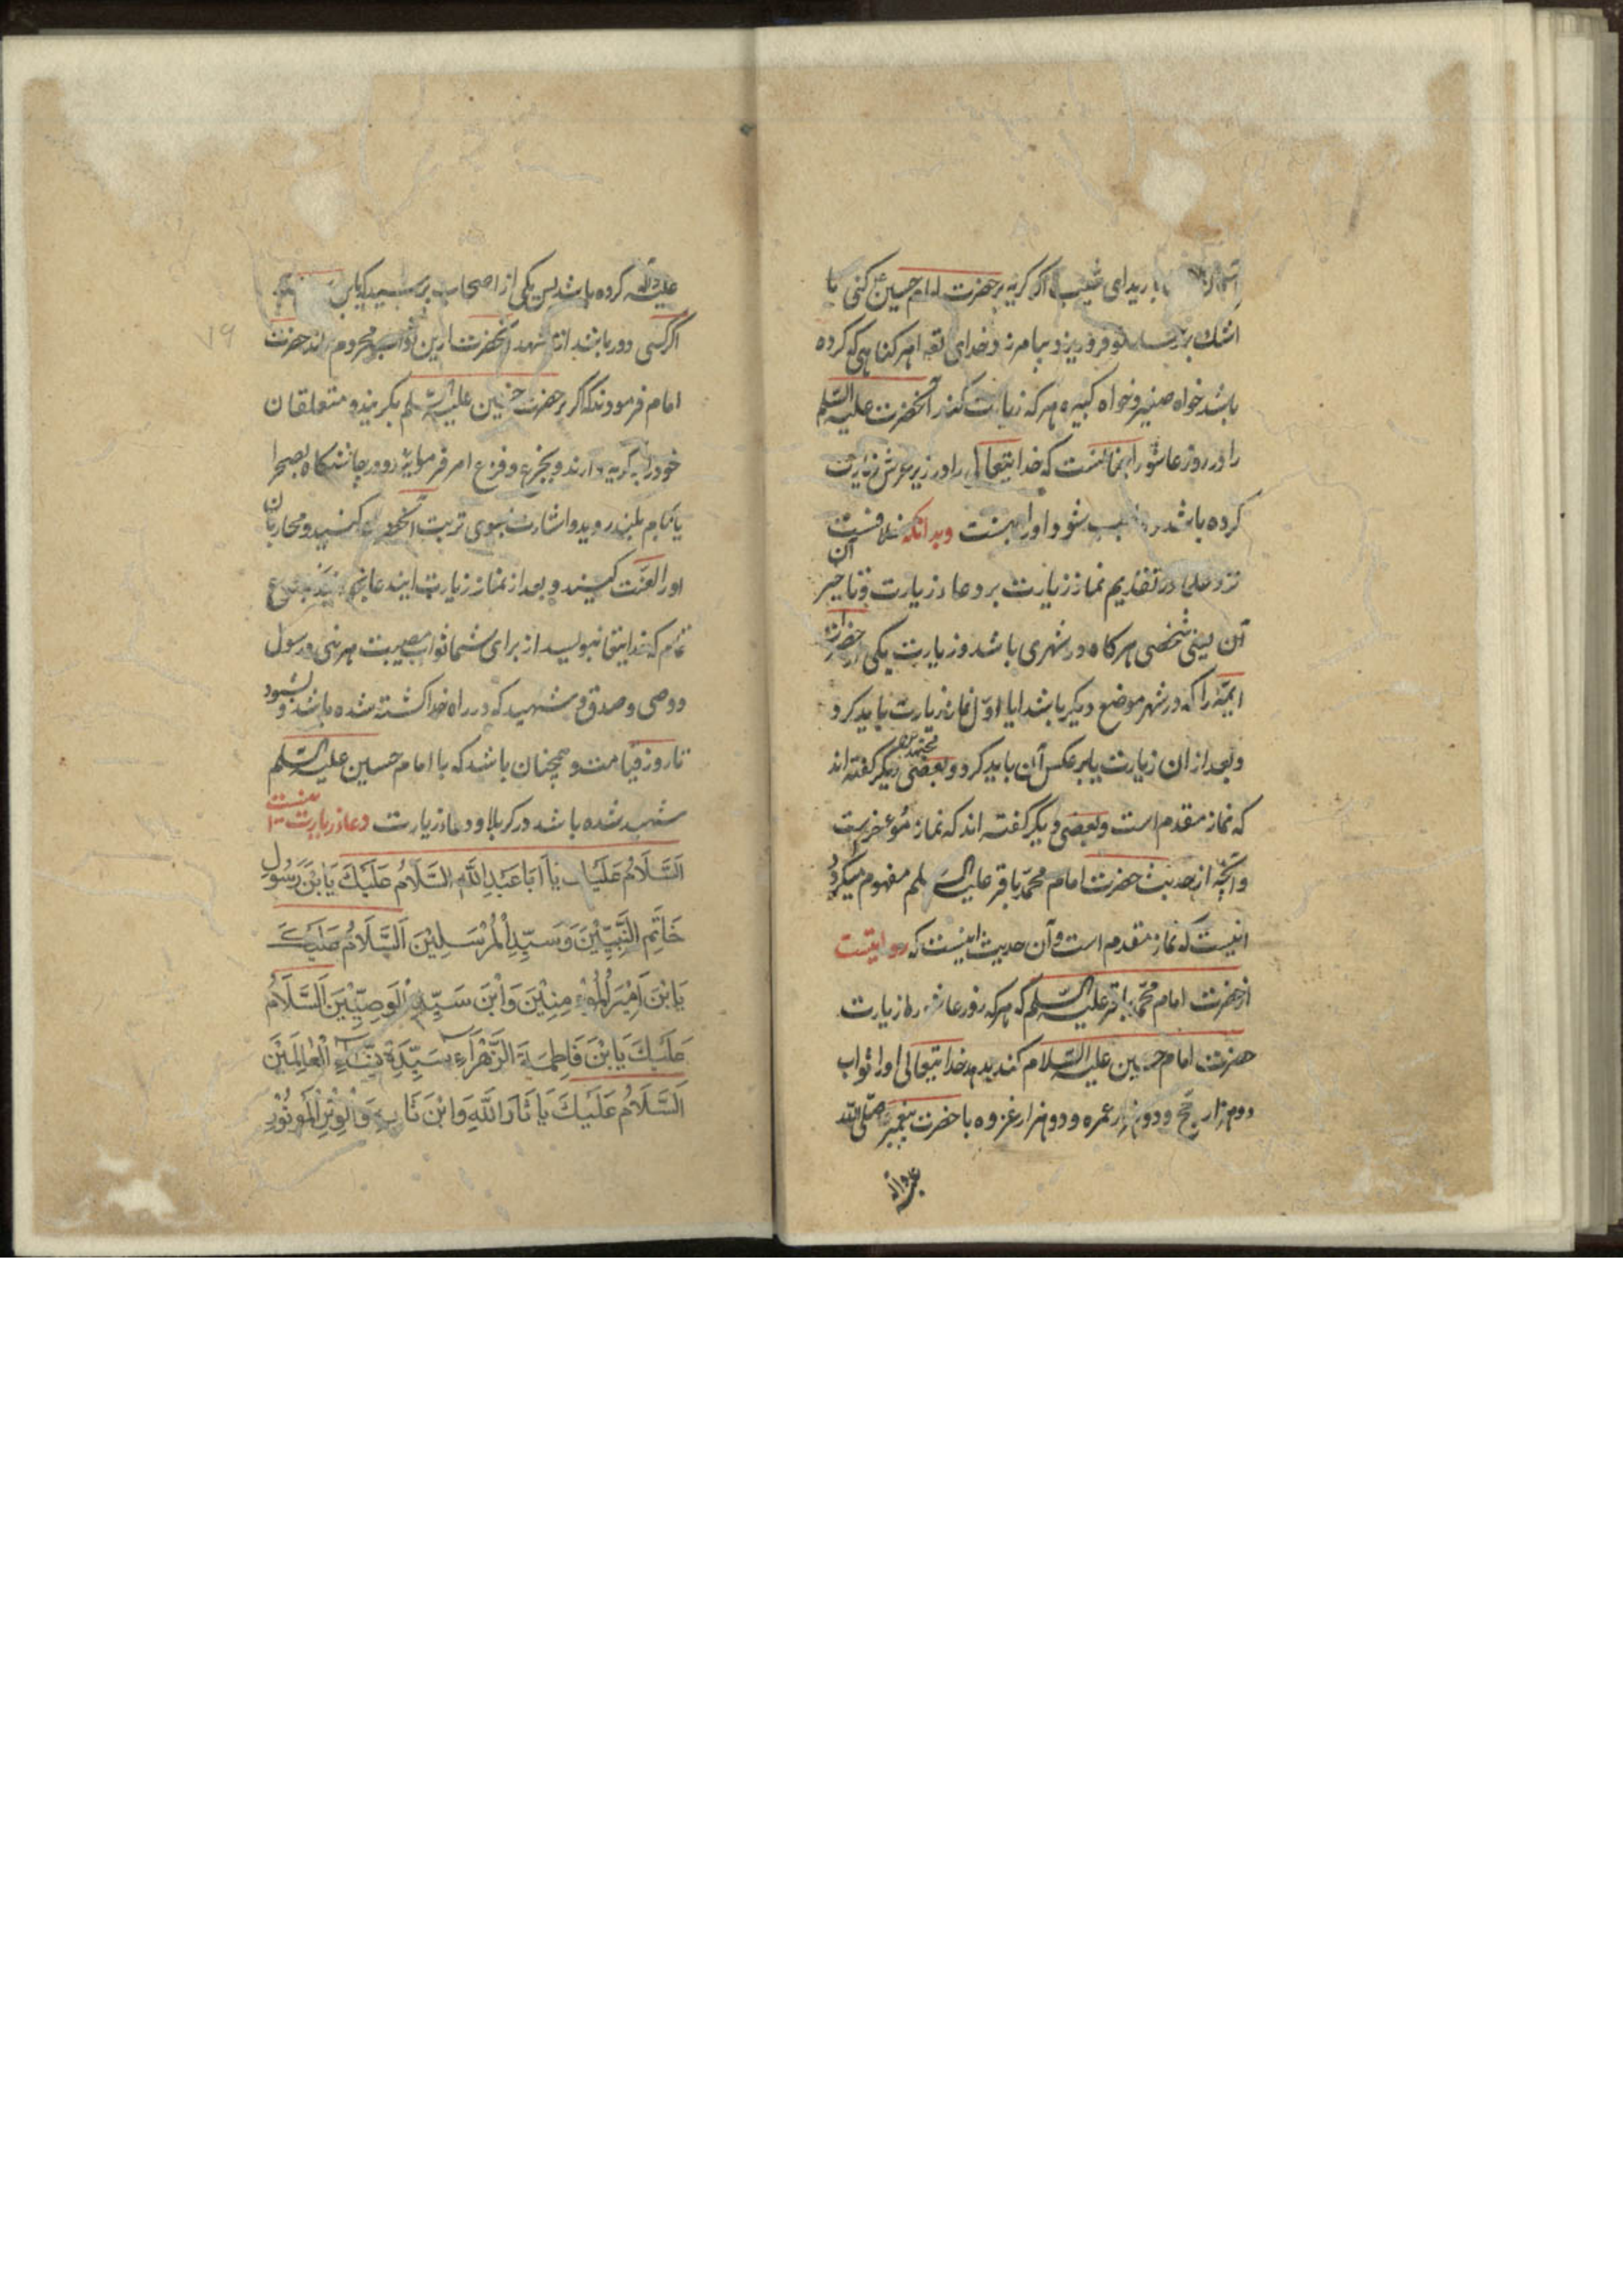 بارید ای شبیب اگر گریه بر حضرت امام حسین ع کنی تا
اشک بر تو فروریزد بیامرزد خدای تعه هر گناهی که کرده
باشد خواه صغیر و خواه کبیره هر که زیارت کند آنحضرت علیه السلم
را در روز عاشورا همچنانست که خدایتعالی را در زیر عرش زیارت
کرده باشد شود او را بهشت وبدانکه خلافست
نزد علما در تقدیم نماز زیارت بر دعاء زیارت وتاخیر آن
آن یعنی شخصی هرگاه در شهری باشد وزیارت یکی از حضرات
ایمّه را که در شهر موضع دیگر باشد ایا اوّل نماز زیارت باید کرد
وبعد از ان زیارت یا برعکس آن باید کرد وبعضی مجتهدین دیگر گفته اند
که نماز مقدم است وبعضی دیگر گفته اند که نماز مؤخر است
وآنچه از حدیث حضرت امام محمّد باقر علیه السلم مفهوم میگردد
اینست که نماز مقدم است وآن حدیث اینست که روایتست
از حضرت امام محمّد باقر علیه السلم که هر که روز عاشوره زیارت
حضرت امام حسین علیه السلام کند بدهد خدایتعالی او را ثواب
دو هزار حج ودو هزار عمره ودو هزار غزوه با حضرت پیغمبر صلّی الله
علیه واله
علیه واله کرده باشد پس یکی از اصحاب پرسید که یابن
اگر کسی دور باشد از مشهد آنحضرت ازین ثواب محروم اند حضرت
امام فرمودند که اگر بر حضرت حسین علیه السلم بگریند و متعلقان
خود را بگریه دارند وبجزع وفزع امر فرمایند ودر چاشتگاه بصحرا
یا ببام بلند روید واشارت بسوی تربت آنحضرت کنید ومحاربان
اورا لعنت کنید وبعد از نماز زیارت
که خدایتعا نبویسد از برای شما ثواب مصیبت هر نبی ورسول
ووصی وصدق وشهید که در راه خدا کشته شده باشد وبشود
تا روز قیامت وهمچنان باشد که با امام حسین علیه السلم
شهید شده باشد در کربلا ودعاء زیارت دعاء زیارت اینست
اَلسَّلَامُ عَلَیْكَ یَا اَبَا عَبْدِ اللّٰهِ اَلسَّلَامُ عَلَیْكَ یَا بْنَ رَسُوْلِ
خَاتِمِ النَّبِیِّیْنَ وَسَیِّدِ اْلمُرْسَلِیْنَ اَلسَّلَامُ عَلَیْكَ
یَا بْنَ اَمِیْرَ اْلمُؤْمِنِیْنَ وَابْنَ سَیِّدِ اْلوَصِیِّیْنَ اَلسَّلَامُ
عَلَیْكَ یَا بْنَ فَاطِمَةَ الزَّهْرَاءِ سَیِّدَةِ نِسَاءِ اْلعٰالَمِیْنَ
اَلسَّلَامُ عَلَیْكَ یَا ثَارَ اللّٰهِ وَابْنَ ثَارِهِ وَاْلوِتْرَ اْلمَوْتُوْرَ
۷۹